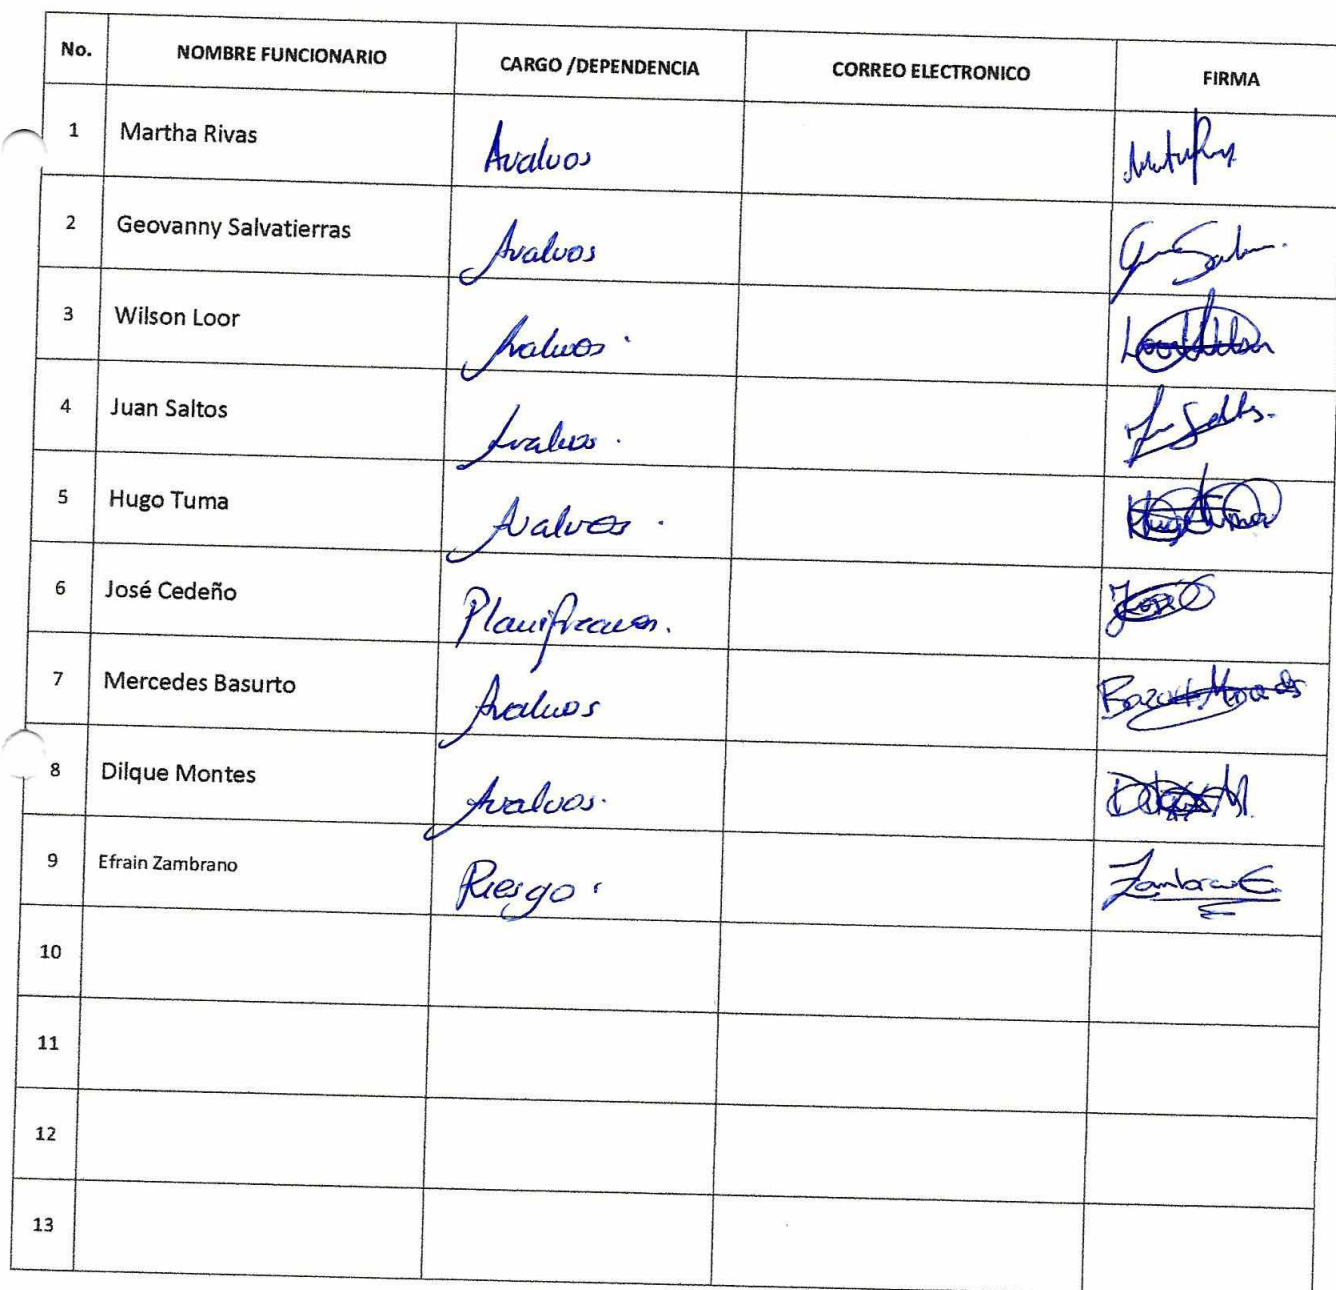 No. NOMBRE FUNCIONARIO CARGO /DEPENDENCIA CORREO ELECTRONICO FIRMA
1 Martha Rivas Avaluos
2 Geovanny Salvatierras Avaluos
3 Wilson Loor Avaluos. Loor Wilson
4 Juan Saltos Avaluos.
5 Hugo Tuma Avaluos. Hugo Tuma
6 José Cedeño José
7 Mercedes Basurto Avaluos
8 Dilque Montes Avaluos.
9 Efrain Zambrano Riesgo. Zambrano E
10
11
12
13